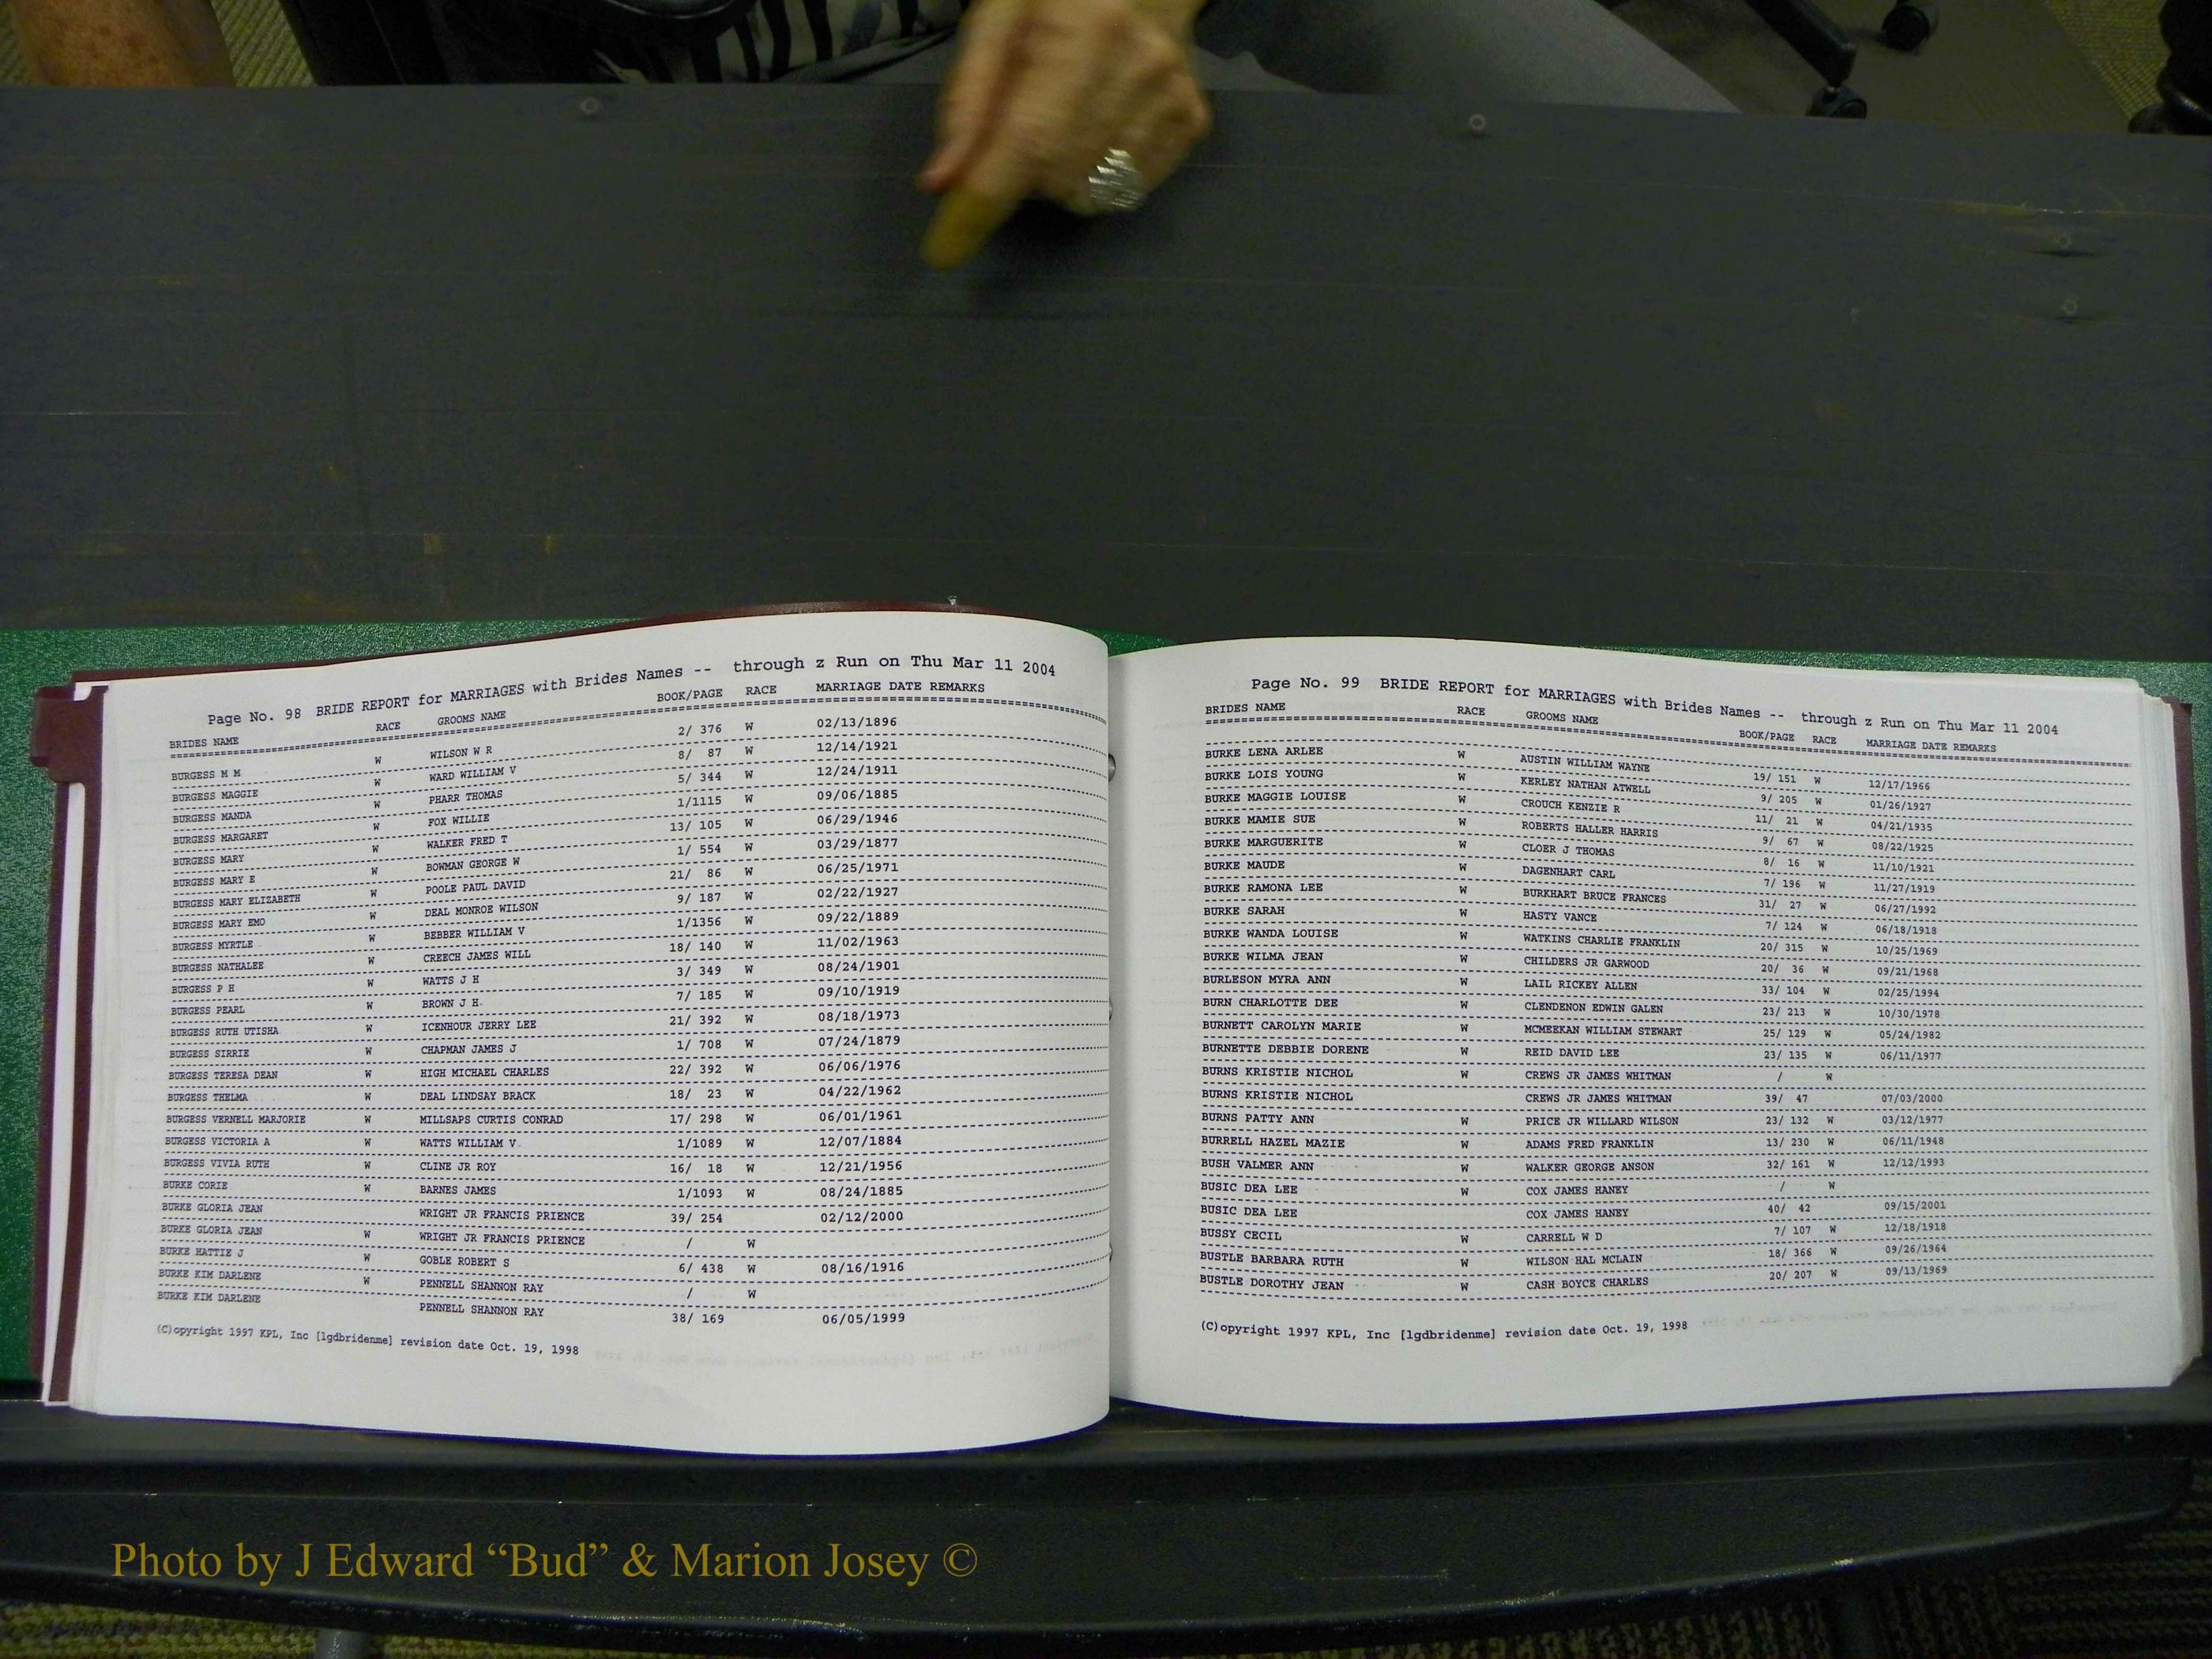 Page No. 98 BRIDE REPORT for MARRIAGES with Brides Names -- through z Run on Thu Mar 11 2004
BRIDES NAME RACE GROOMS NAME BOOK/PAGE RACE MARRIAGE DATE REMARKS
BURGESS M M W WILSON W R 2/ 376 W 02/13/1896
BURGESS MAGGIE W WARD WILLIAM V 8/ 87 W 12/14/1921
BURGESS MANDA W PHARR THOMAS 5/ 344 W 12/24/1911
BURGESS MARGARET W FOX WILLIE 1/1115 W 09/06/1885
BURGESS MARY W WALKER FRED T 13/ 105 W 06/29/1946
BURGESS MARY E W BOWMAN GEORGE W 1/ 554 W 03/29/1877
BURGESS MARY ELIZABETH W POOLE PAUL DAVID 21/ 86 W 06/25/1971
BURGESS MARY EMO W DEAL MONROE WILSON 9/ 187 W 02/22/1927
BURGESS MYRTLE W BEBBER WILLIAM V 1/1356 W 09/22/1889
BURGESS NATHALEE W CREECH JAMES WILL 18/ 140 W 11/02/1963
BURGESS P H W WATTS J H 3/ 349 W 08/24/1901
BURGESS PEARL W BROWN J H 7/ 185 W 09/10/1919
BURGESS RUTH UTISHA W ICENHOUR JERRY LEE 21/ 392 W 08/18/1973
BURGESS SIRRIE W CHAPMAN JAMES J 1/ 708 W 07/24/1879
BURGESS TERESA DEAN W HIGH MICHAEL CHARLES 22/ 392 W 06/06/1976
BURGESS THELMA W DEAL LINDSAY BRACK 18/ 23 W 04/22/1962
BURGESS VERNELL MARJORIE W MILLSAPS CURTIS CONRAD 17/ 298 W 06/01/1961
BURGESS VICTORIA A W WATTS WILLIAM V 1/1089 W 12/07/1884
BURGESS VIVIA RUTH W CLINE JR ROY 16/ 18 W 12/21/1956
BURKE CORIE W BARNES JAMES 1/1093 W 08/24/1885
BURKE GLORIA JEAN WRIGHT JR FRANCIS PRIENCE 39/ 254 02/12/2000
BURKE GLORIA JEAN W WRIGHT JR FRANCIS PRIENCE / W
BURKE HATTIE J W GOBLE ROBERT S 6/ 438 W 08/16/1916
BURKE KIM DARLENE W PENNELL SHANNON RAY / W
BURKE KIM DARLENE PENNELL SHANNON RAY 38/ 169 06/05/1999
(C)opyright 1997 KPL, Inc [lgdbridenme] revision date Oct. 19, 1998
Page No. 99 BRIDE REPORT for MARRIAGES with Brides Names -- through z Run on Thu Mar 11 2004
BRIDES NAME RACE GROOMS NAME BOOK/PAGE RACE MARRIAGE DATE REMARKS
BURKE LENA ARLEE W AUSTIN WILLIAM WAYNE 19/ 151 W 12/17/1966
BURKE LOIS YOUNG W KERLEY NATHAN ATWELL 9/ 205 W 01/26/1927
BURKE MAGGIE LOUISE W CROUCH KENZIE R 11/ 21 W 04/21/1935
BURKE MAMIE SUE W ROBERTS HALLER HARRIS 9/ 67 W 08/22/1925
BURKE MARGUERITE W CLOER J THOMAS 8/ 16 W 11/10/1921
BURKE MAUDE W DAGENHART CARL 7/ 196 W 11/27/1919
BURKE RAMONA LEE W BURKHART BRUCE FRANCES 31/ 27 W 06/27/1992
BURKE SARAH W HASTY VANCE 7/ 124 W 06/18/1918
BURKE WANDA LOUISE W WATKINS CHARLIE FRANKLIN 20/ 315 W 10/25/1969
BURKE WILMA JEAN W CHILDERS JR GARWOOD 20/ 36 W 09/21/1968
BURLESON MYRA ANN W LAIL RICKEY ALLEN 33/ 104 W 02/25/1994
BURN CHARLOTTE DEE W CLENDENON EDWIN GALEN 23/ 213 W 10/30/1978
BURNETT CAROLYN MARIE W MCMEEKAN WILLIAM STEWART 25/ 129 W 05/24/1982
BURNETTE DEBBIE DORENE W REID DAVID LEE 23/ 135 W 06/11/1977
BURNS KRISTIE NICHOL W CREWS JR JAMES WHITMAN / W
BURNS KRISTIE NICHOL CREWS JR JAMES WHITMAN 39/ 47 07/03/2000
BURNS PATTY ANN W PRICE JR WILLARD WILSON 23/ 132 W 03/12/1977
BURRELL HAZEL MAZIE W ADAMS FRED FRANKLIN 13/ 230 W 06/11/1948
BUSH VALMER ANN W WALKER GEORGE ANSON 32/ 161 W 12/12/1993
BUSIC DEA LEE W COX JAMES HANEY / W
BUSIC DEA LEE COX JAMES HANEY 40/ 42 09/15/2001
BUSSY CECIL W CARRELL W D 7/ 107 W 12/18/1918
BUSTLE BARBARA RUTH W WILSON HAL MCLAIN 18/ 366 W 09/26/1964
BUSTLE DOROTHY JEAN W CASH BOYCE CHARLES 20/ 207 W 09/13/1969
(C)opyright 1997 KPL, Inc [lgdbridenme] revision date Oct. 19, 1998
Photo by J Edward “Bud” & Marion Josey ©